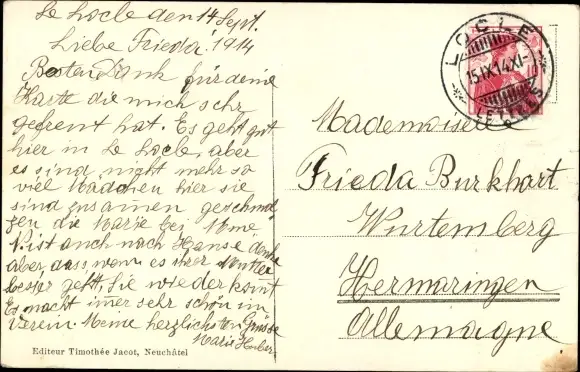 Le Locle den 14 Sept.
Liebe Frieda! 1914
Besten Dank für deine
Karte die mich sehr
gefreut hat. Es geht gut
hier in Le Locle, aber
es sind nicht mehr so
viel Mädchen hier sie
sind zusamen
gen die Marie bei Mme
N. ist auch nach Hause
aber, dass wenn es ihrer Mutter
besser geht, sie wieder komt
Es macht imer sehr schön im
Verein. Meine herzlichsten Grüsse
Marie Huber
Editeur Timothée Jacot, Neuchâtel
LOCLE
15.IX.14.XI-
LETTRES
Mademoiselle
Frieda Burkhart
Wurtemberg
Hermaringen
Allemagne